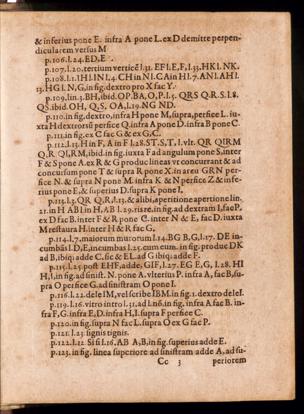 & inferius pone E. infra A pone L. ex D demitte perpen-
dicularem versus M
p.106.l.24. ED, E.
p.107.l.20. tertium verticē l.31. EF l. E, F, l.33. HK l. NK.
p.108.l.1. IH l. NI l.4. CH in NI. CA in HI l.7. ANI. AH l.
13. HG l. N G, in fig. dextro pro X fac Y.
p.109. lin.3. BH, ibid. OP. BA, O, P l.5. QRS Q. R. S. l.8.
QS. ibid. OH, Q, S, OA, l.19. NG ND.
p.110. in fig. dextro, infra H pone M, supra, perfice L. iu-
xta H dextrorsũ perfice Q. infra A pone D. infra B pone C.
p.111. in fig. ex C fac G & ex G, C.
p.112.l.13. H in F, A in F l.28. S T. S, T. l. vlt. QR QIRM
Q, R QI, RM, ibid. in fig. iuxta F ad angulum pone S. inter
F & S pone A. ex R & G produc lineas vt concurrant & ad
concursum pone T & supra R pone X. in area GRN per-
fice N. & supra N pone M. infra K & N perfice Z & infe-
rius pone E. & superius D. supra K pone I.
p.113.l.3. QR Q, R, l.13. & alibi, apetitione apertione lin.
21. in H AB l. in H, AB l.29. risane. in fig. ad dextram I, fac F.
ex D fac B. inter F & R pone C. inter N & E, fac D. iuxta
M restaura H. inter H & R fac G,
p.114.l.7. maiorum mutorum l.14. BG B, G, l.17. DE in-
cumbũs l. D, E, incumbas l.25. cum eum. in fig. produc DK
ad B, ibiq; adde C. sic & EL ad G ibiq; adde F.
p.115.l.25. post EHF, adde, GIF, l.27. EG E, G, l.28. HI
H, I, in fig. ad sinist. N. pone A. vlterius P. infra A, fac B, su-
pra O perfice G. ad sinistram O pone I.
p.116.l.22. dele IM, vel scribe IBM. in fig. 1. dextro dele I.
p.119.l.16. vitro intro l.31. ad l. n6. in fig. infra A fac B. in-
fra F, G. infra E, D. infra H, I. supra F perfice C.
p.120. in fig. supra N fac L. supra O ex G fac P.
p.121.l.23. signis tignis.
p.122.l.12. Si si l.16. AB A, B, in fig. superius adde E.
p.123. in fig. linea superiore ad sinistram adde A, ad su-
Cc 3 periorem